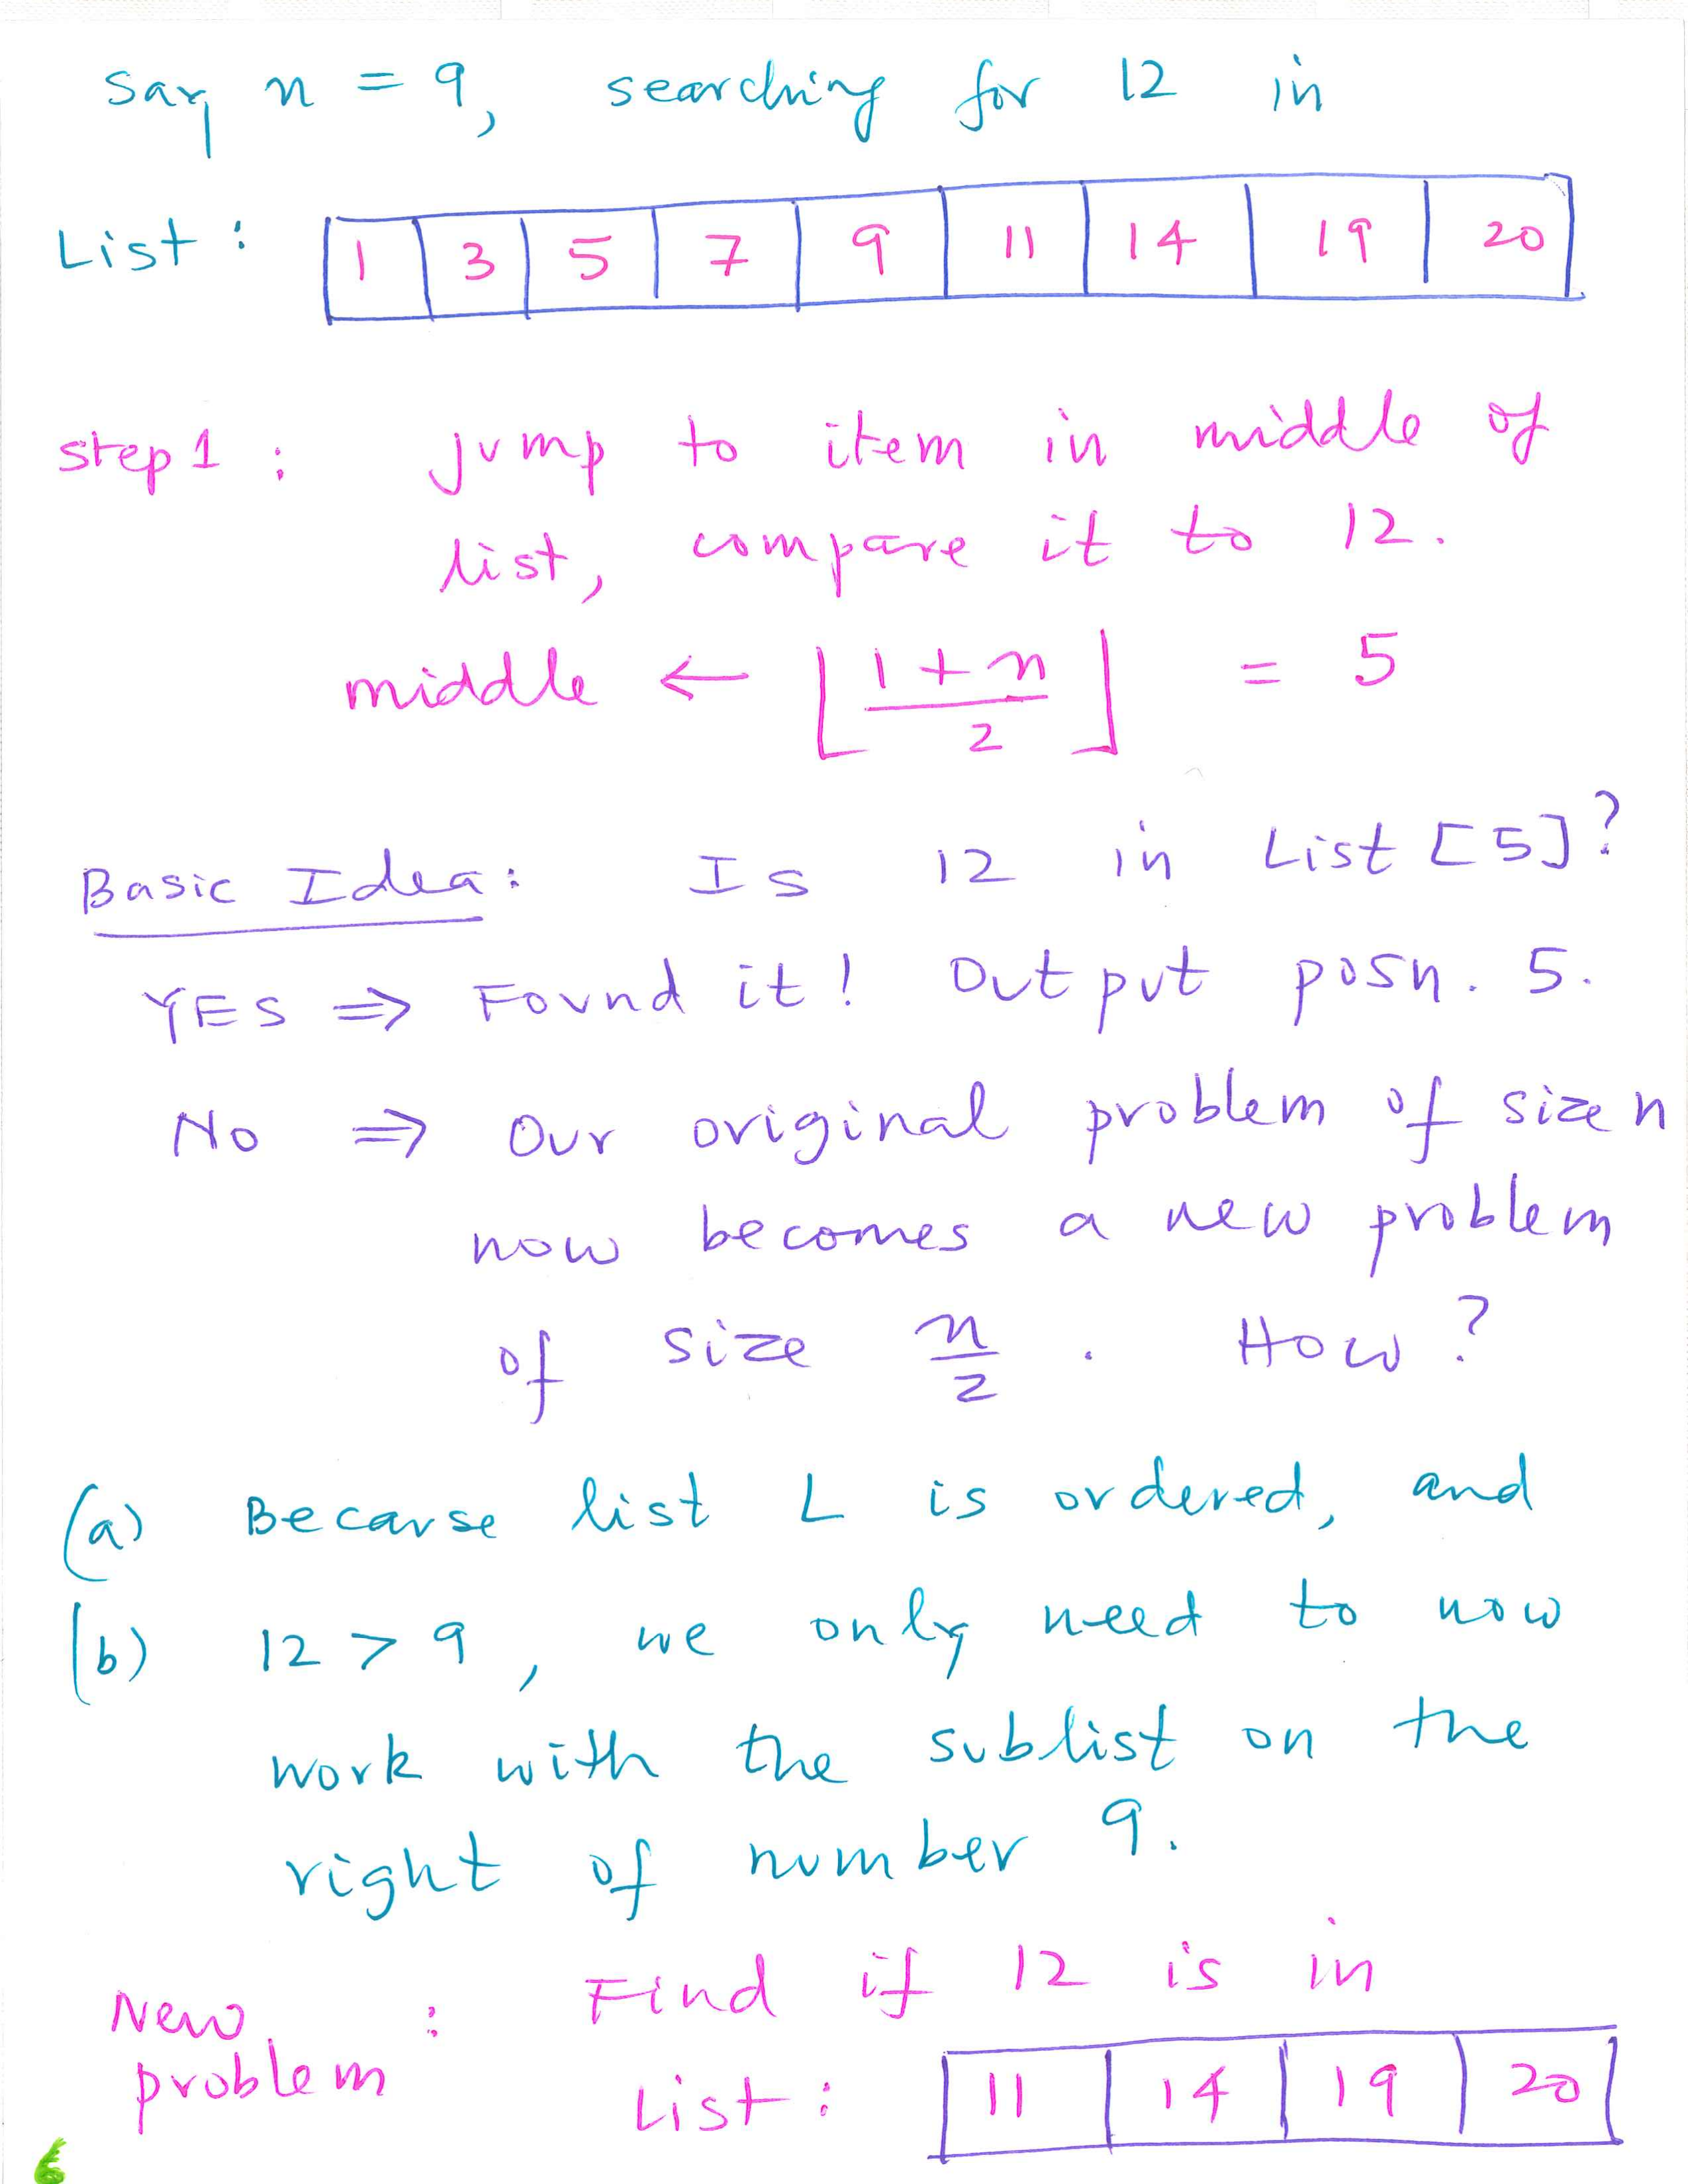 Say n = 9, searching for 12 in
List : 1 3 5 7 9 11 14 19 20
Step 1 : jump to item in middle of
list, compare it to 12.
middle ← ⌊(1 + n)/2⌋ = 5
Basic Idea: Is 12 in List [5]?
YES ⇒ Found it! Output posn. 5.
No ⇒ Our original problem of size n
now becomes a new problem
of size n/2 . How?
(a) Because list L is ordered, and
(b) 12 > 9, we only need to now
work with the sublist on the
right of number 9.
New problem : Find if 12 is in
List : 11 14 19 20
6